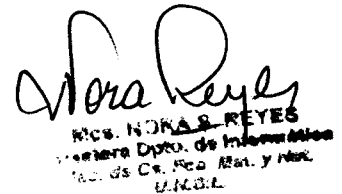 Nora Reyes
Mcs. NORA S. REYES
Dpto. de Informática
de Cs. Fco. Mat. y Nat.
U.N.S.L.